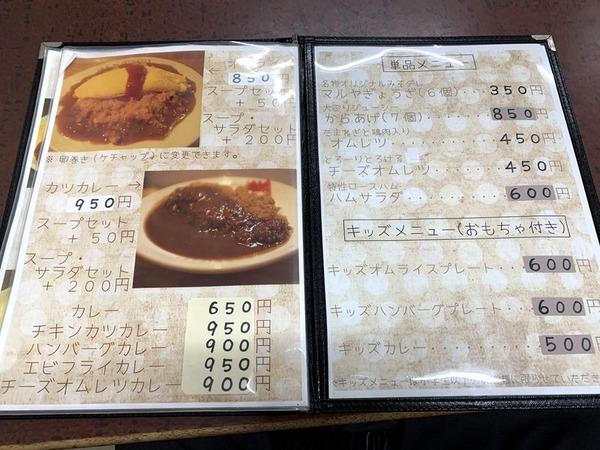 850円
スープセット
+ 50円
スープ・
サラダセット
+ 200円
※ 卵巻き(ケチャップ)に変更できます。
カツカレー→
950円
スープセット
+ 50円
スープ・
サラダセット
+ 200円
カレー 650円
チキンカツカレー 950円
ハンバーグカレー 900円
エビフライカレー 950円
チーズオムレツカレー 900円
単品メニュー
マルやぎょうざ(6個) 350円
からあげ(7個) 850円
たまねぎと鶏肉入り
オムレツ ・・・ 450円
とろーりとろける
チーズオムレツ ・・ 450円
特性ロースハム
ハムサラダ ・・・ 600円
キッズメニュー(おもちゃ付き)
キッズオムライスプレート ・・・ 600円
キッズハンバーグプレート ・・・ 600円
キッズカレー ・・・・・・ 500円